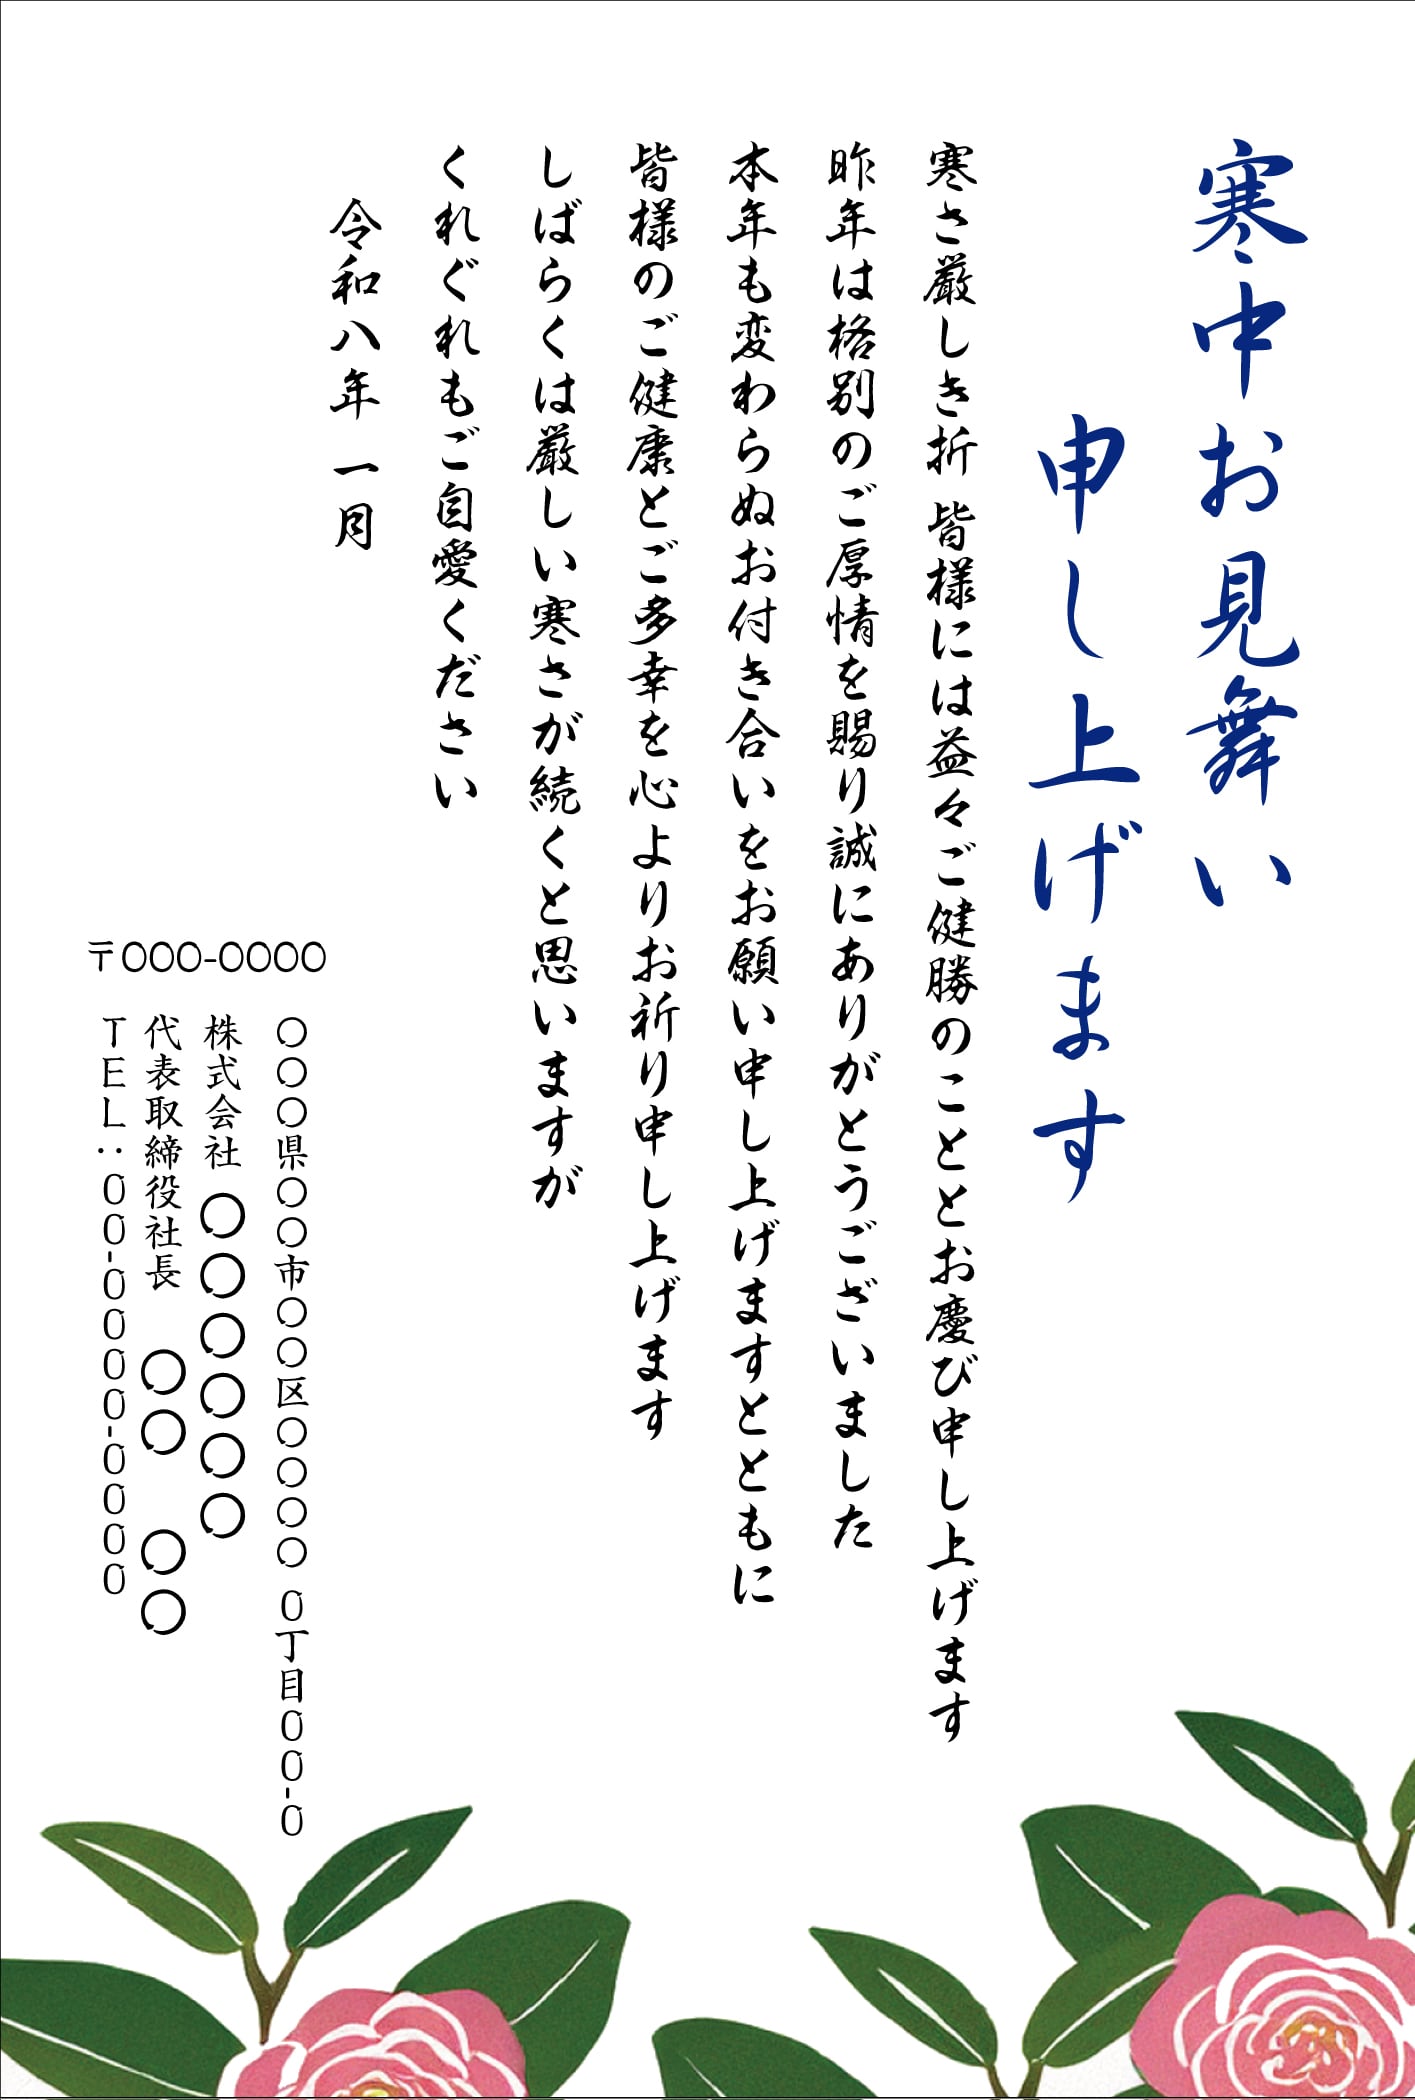 寒中お見舞い
申し上げます
寒さ厳しき折 皆様には益々ご健勝のこととお慶び申し上げます
昨年は格別のご厚情を賜り誠にありがとうございました
本年も変わらぬお付き合いをお願い申し上げますとともに
皆様のご健康とご多幸を心よりお祈り申し上げます
しばらくは厳しい寒さが続くと思いますが
くれぐれもご自愛ください
令和八年 一月
〒000-0000
〇〇〇県〇〇市〇〇区〇〇〇〇 0丁目00-0
株式会社 〇〇〇〇〇〇
代表取締役社長 〇〇 〇〇
TEL:00-0000-0000